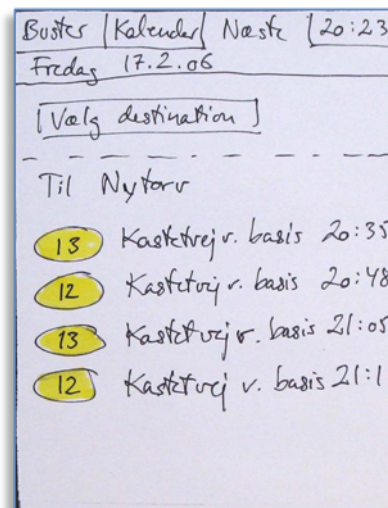 Buster Kalender Næste 20:23
Fredag 17.2.06
Vælg destination
Til Nytorv
13 Kastetvej v. basis 20:35
12 Kastetvej v. basis 20:48
13 Kastetvej v. basis 21:05
12 Kastetvej v. basis 21:1